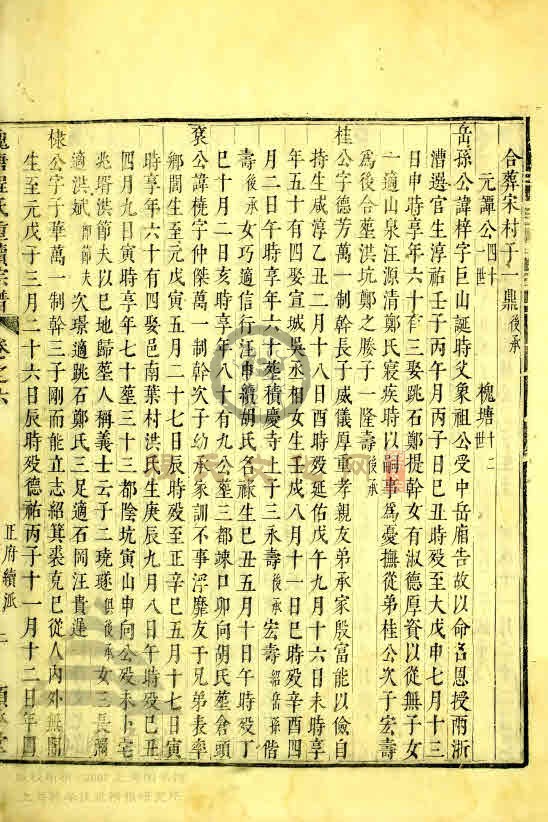 合葬宋村子一鼎後承
元譚公四十一世 槐塘十二世
岳孫公諱梓字巨山誕時父象祖公受中岳廟吿故以命名恩授兩浙
漕遇官生淳祐壬子丙午月丙子日己丑時歿至大戊申七月十三
日申時享年六十有三娶跳石鄭提幹女有淑德厚資以從無子女
一適山泉汪源清鄭氏寢疾時以嗣事為憂撫從弟桂公次子宏壽
為後合葬洪坑鄭之媵子一隆壽後承
桂公字德芳萬一制幹長子威儀厚重孝親友弟承家殷富能以儉自
持生咸淳乙丑二月十八日酉時歿延佑戊午九月十六日未時享
年五十有四娶宣城吳丞相女生壬戌八月十一日巳時歿辛酉四
月二日午時享年六十葬積慶寺上子三永壽後承宏壽紹岳孫偕
壽後承女巧適信行汪申續胡氏名祿生己丑五月十日午時歿丁
巳十月二日亥時享年八十有九公塟三都竦口卯向胡氏塟倉頭
袞公諱橈字仲傑萬一制幹次子幼承家訓不事浮靡友于兄弟表率
鄉閭生至元戊寅五月二十七日辰時歿至正辛巳五月十七日寅
時享年六十有四娶邑南葉村洪氏生庚辰九月八日午時歿己丑
四月九日寅時享年七十塟三十三都陰坑寅山申向公歿未卜宅
兆壻洪節夫以己地歸塟人稱義士云子二珗璲俱後承女三長瀰
適洪斌即節夫次璟適跳石鄭氏三足適石岡汪貴達
棣公字子華萬一制幹三子剛而能立志紹箕裘克己從人內外無間
生至元戊子三月二十六日辰時歿德祐丙子十一月十二日年四
槐塘程氏重續宗譜 卷之六 正府續派 二